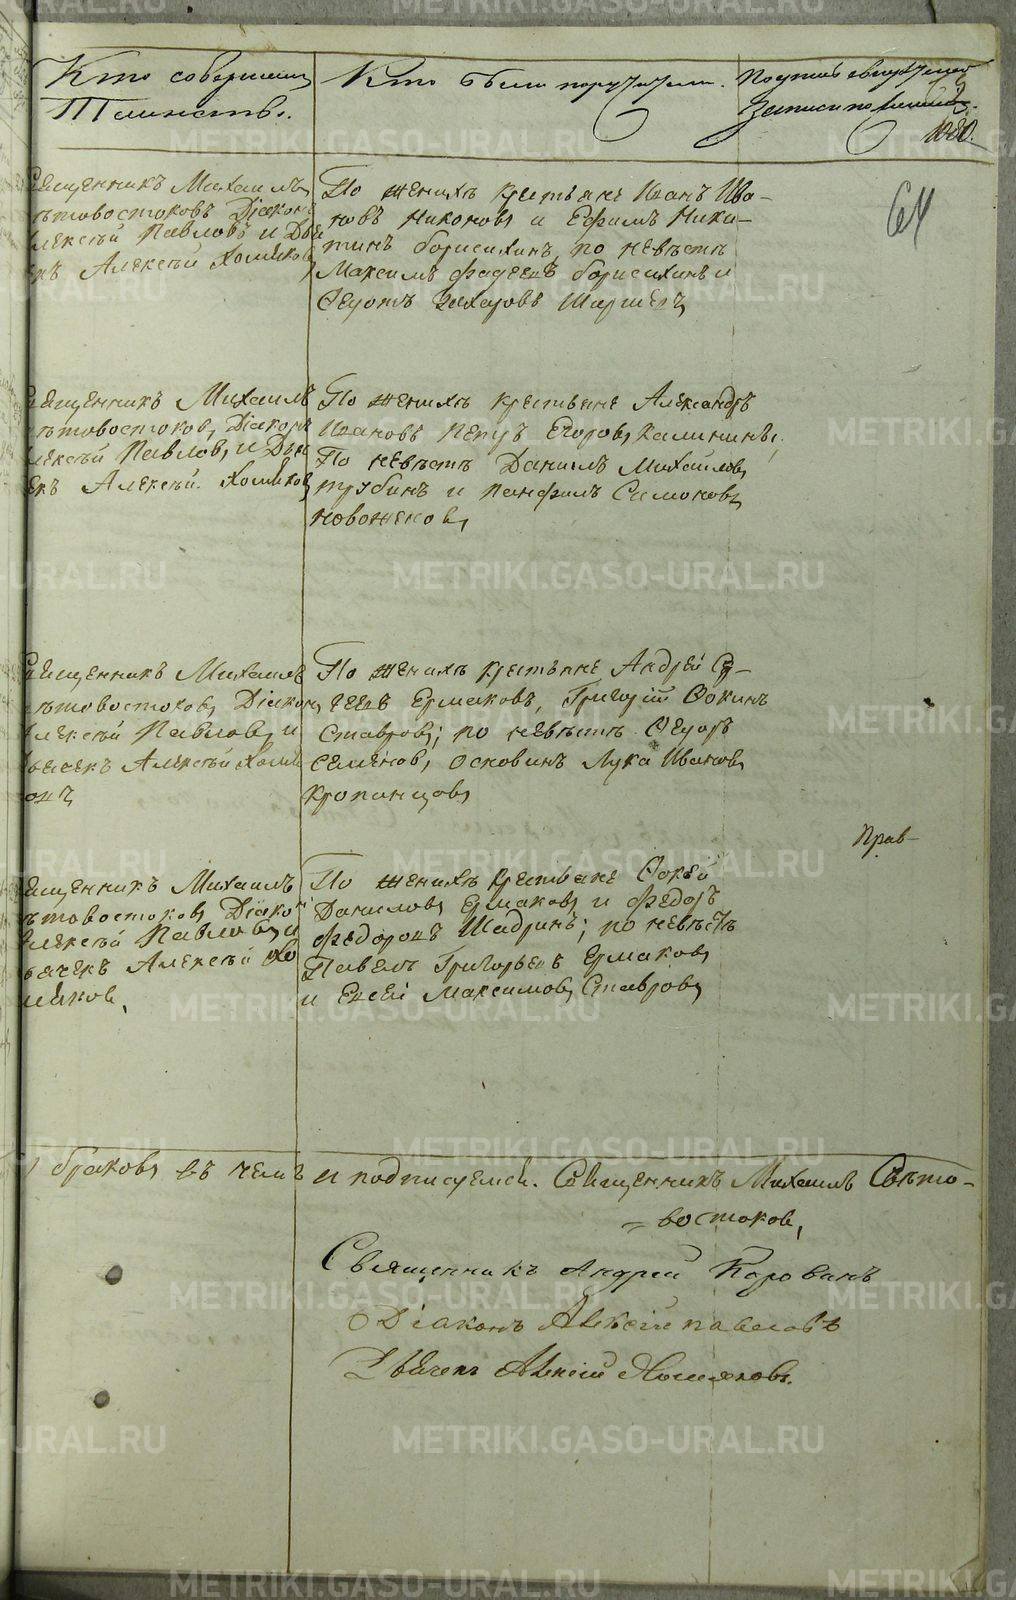 Кто совершилъ Таинство.
Кто были поручители.
Подпись свидѣтелей записи по желанію.
1080.
64
Священникъ Михаилъ
Свѣтовостоковъ Діаконъ
Алексѣй Павловъ и Дья
чекъ Алексѣй Хомяковъ
По женихѣ крестьяне Иванъ Ива-
новъ Никоновъ и Ефимъ Ники-
тинъ борисихинъ, по невѣстѣ
Максимъ Фадеевъ борисихинъ и
Ѳедотъ Захаровъ
Священникъ Михаилъ
Свѣтовостоковъ, Діаконъ
Алексѣй Павловъ, и Дья
чекъ Алексѣй Хомяковъ
По женихѣ крестьяне Александръ
Ивановъ Петръ Егоровъ Калининъ,
По невѣстѣ Данилъ Михайловъ
трубинъ и Панфилъ Симоновъ
новоженовъ
Священникъ Михаилъ
Свѣтовостоковъ Діаконъ
Алексѣй Павловъ, и
Дьячекъ Алексѣй Хомя
ковъ
По женихѣ крестьяне Андрей Сер-
гѣевъ Ермаковъ, Григорій Ѳокинъ
Ставровъ; по невѣстѣ Ѳедоръ
семеновъ, осковинъ Лука Ивановъ
кропанцовъ
Прав-
Священникъ Михаилъ
Свѣтовостоковъ Діаконъ
Алексѣй Павловъ и
Дьячекъ Алексѣй Хо
мяковъ,
По женихѣ крестьяне Ѳокей
Даниловъ Ермаковъ и Федоръ
Федоровъ Шадринъ; по невѣстѣ
Павелъ Григорьевъ Ермаковъ
и Евсей Максимовъ Ставровъ
браковъ въ чемъ и подписуемся. Священникъ Михаилъ Свѣто-
=востоковъ,
Священникъ Андрей Коровинъ
Діаконъ Алексій Павловъ
Дьячекъ Алексій Хомяковъ.
METRIKI.GASO-URAL.RU